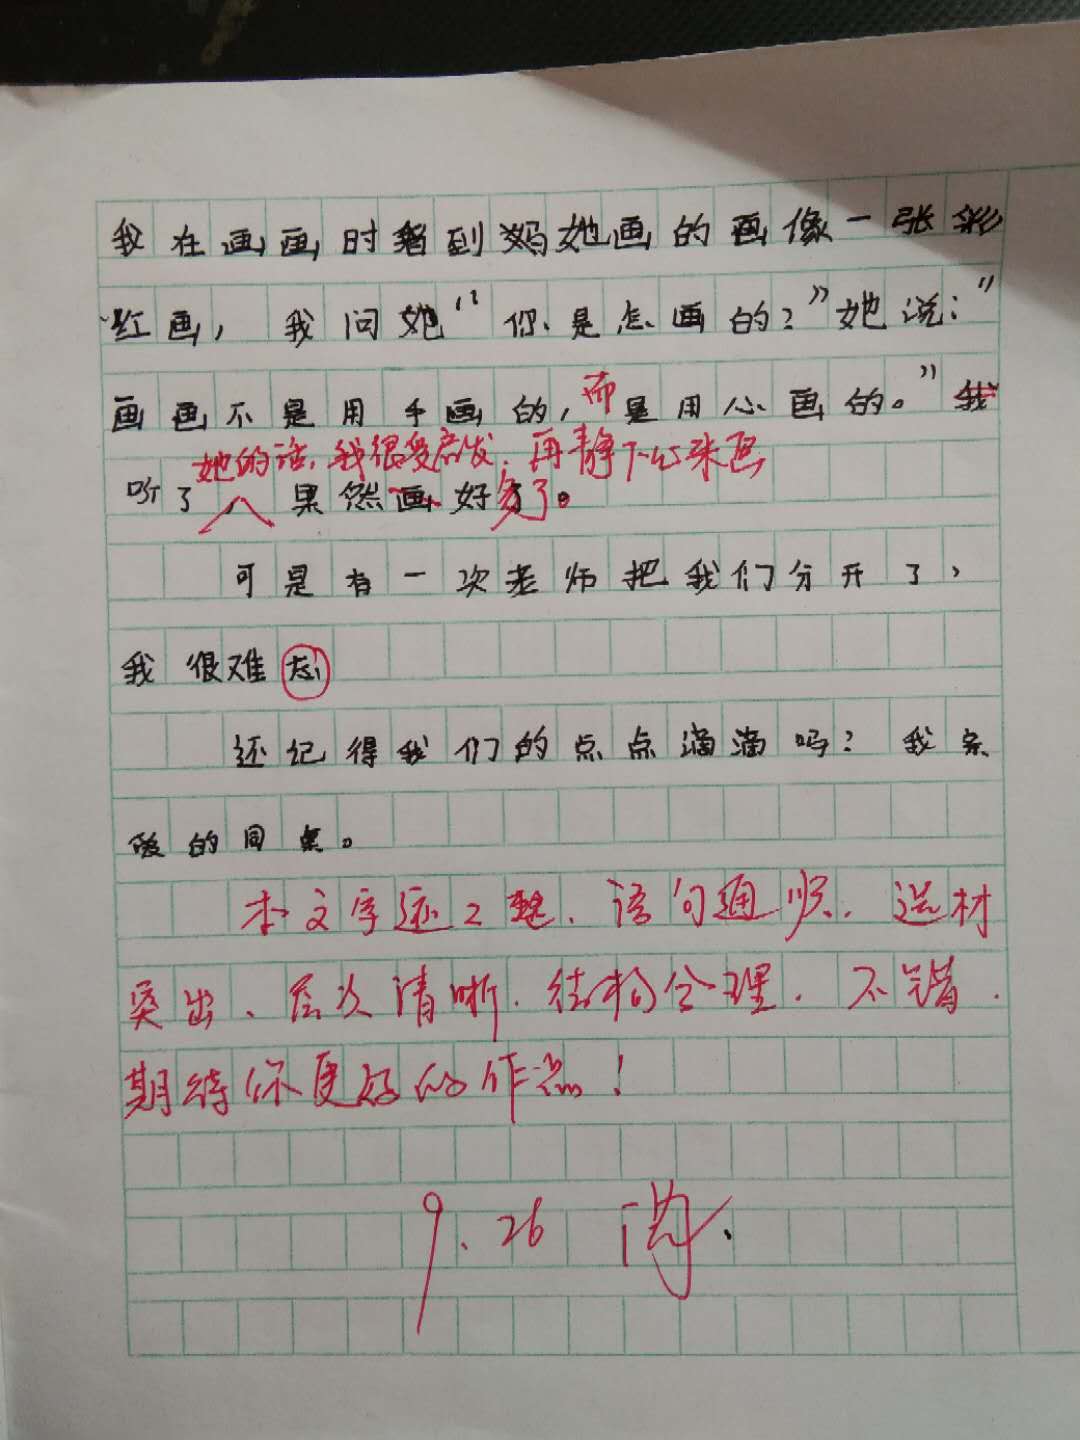 我在画画时看到妈她画的画像一张彩
红画，我问她“你是怎画的？”她说：“
画画不是用手画的，而是用心画的。”我
她的话，我很受启发，再静下心来画
听了果然画好多了。
可是有一次老师把我们分开了，
我很难忘
还记得我们的点点滴滴吗？我亲
爱的同桌。
本文字迹工整、语句通顺、选材
突出、层次清晰、结构合理。不错。
期待你更好的作品！
9.26